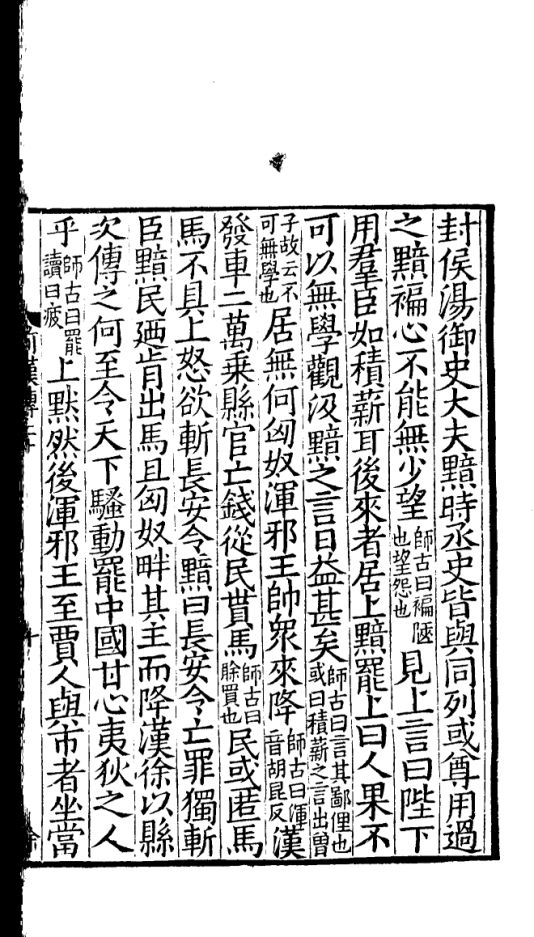 封侯湯御史大夫黯時丞史皆與同列或尊用過
之黯褊心不能無少望師古曰褊隘也望怨也見上言曰陛下
用羣臣如積薪耳後來者居上黯罷上曰人果不
可以無學觀汲黯之言日益甚矣師古曰言其鄙俚也或曰積薪之言出曾
子故云不可無學也居無何匈奴渾邪王帥衆來降師古曰渾音胡昆反漢
發車二萬乘縣官亡錢從民貰馬師古曰賖買也民或匿馬
馬不具上怒欲斬長安令黯曰長安令亡罪獨斬
臣黯民廼肯出馬且匈奴畔其主而降漢徐以縣
次傳之何至令天下騷動罷中國甘心夷狄之人
乎師古曰罷讀曰疲上黙然後渾邪王至賈人與市者坐當
前漢傳二十